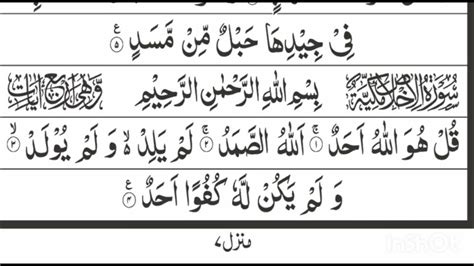 فِیْ جِیْدِهَا حَبْلٌ مِّنْ مَّسَدٍ ۝۵
سُوْرَةُ الْاِخْلَاصِ مَكِّیَّةٌ بِسْمِ اللهِ الرَّحْمٰنِ الرَّحِیْمِ وَّهِیَ اَرْبَعُ اٰیَاتٍ
قُلْ هُوَ اللهُ اَحَدٌ ۝۱ اَللهُ الصَّمَدُ ۝۲ لَمْ یَلِدْ ۙ۬ وَ لَمْ یُوْلَدْ ۝۳
وَ لَمْ یَكُنْ لَّهٗ كُفُوًا اَحَدٌ ۝۴
منزل ۷
InShOt